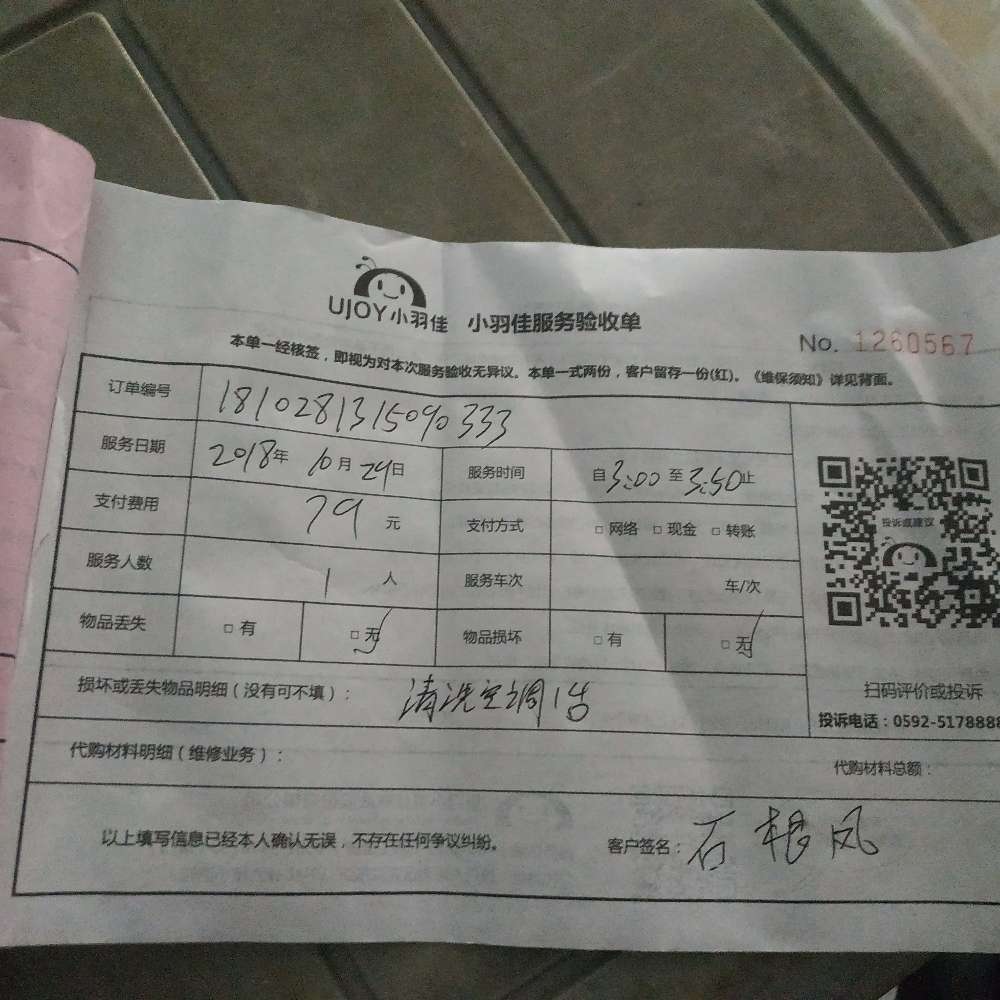 UJOY小羽佳 小羽佳服务验收单
No. 1260567
本单一经核签，即视为对本次服务验收无异议。本单一式两份，客户留存一份(红)。《维保须知》详见背面。
订单编号 1810281315090333
服务日期 2018年 10月 29日 服务时间 自3:00至3:50止
支付费用 79 元 支付方式 □ 网络 □ 现金 □ 转账
投诉或建议
服务人数 1 人 服务车次 车/次
物品丢失 □ 有 □ 无 物品损坏 □ 有 □ 无
损坏或丢失物品明细（没有可不填）： 清洗空调1台
扫码评价或投诉
投诉电话：0592-5178888
代购材料明细（维修业务）： 代购材料总额：
以上填写信息已经本人确认无误，不存在任何争议纠纷。 客户签名：石根凤